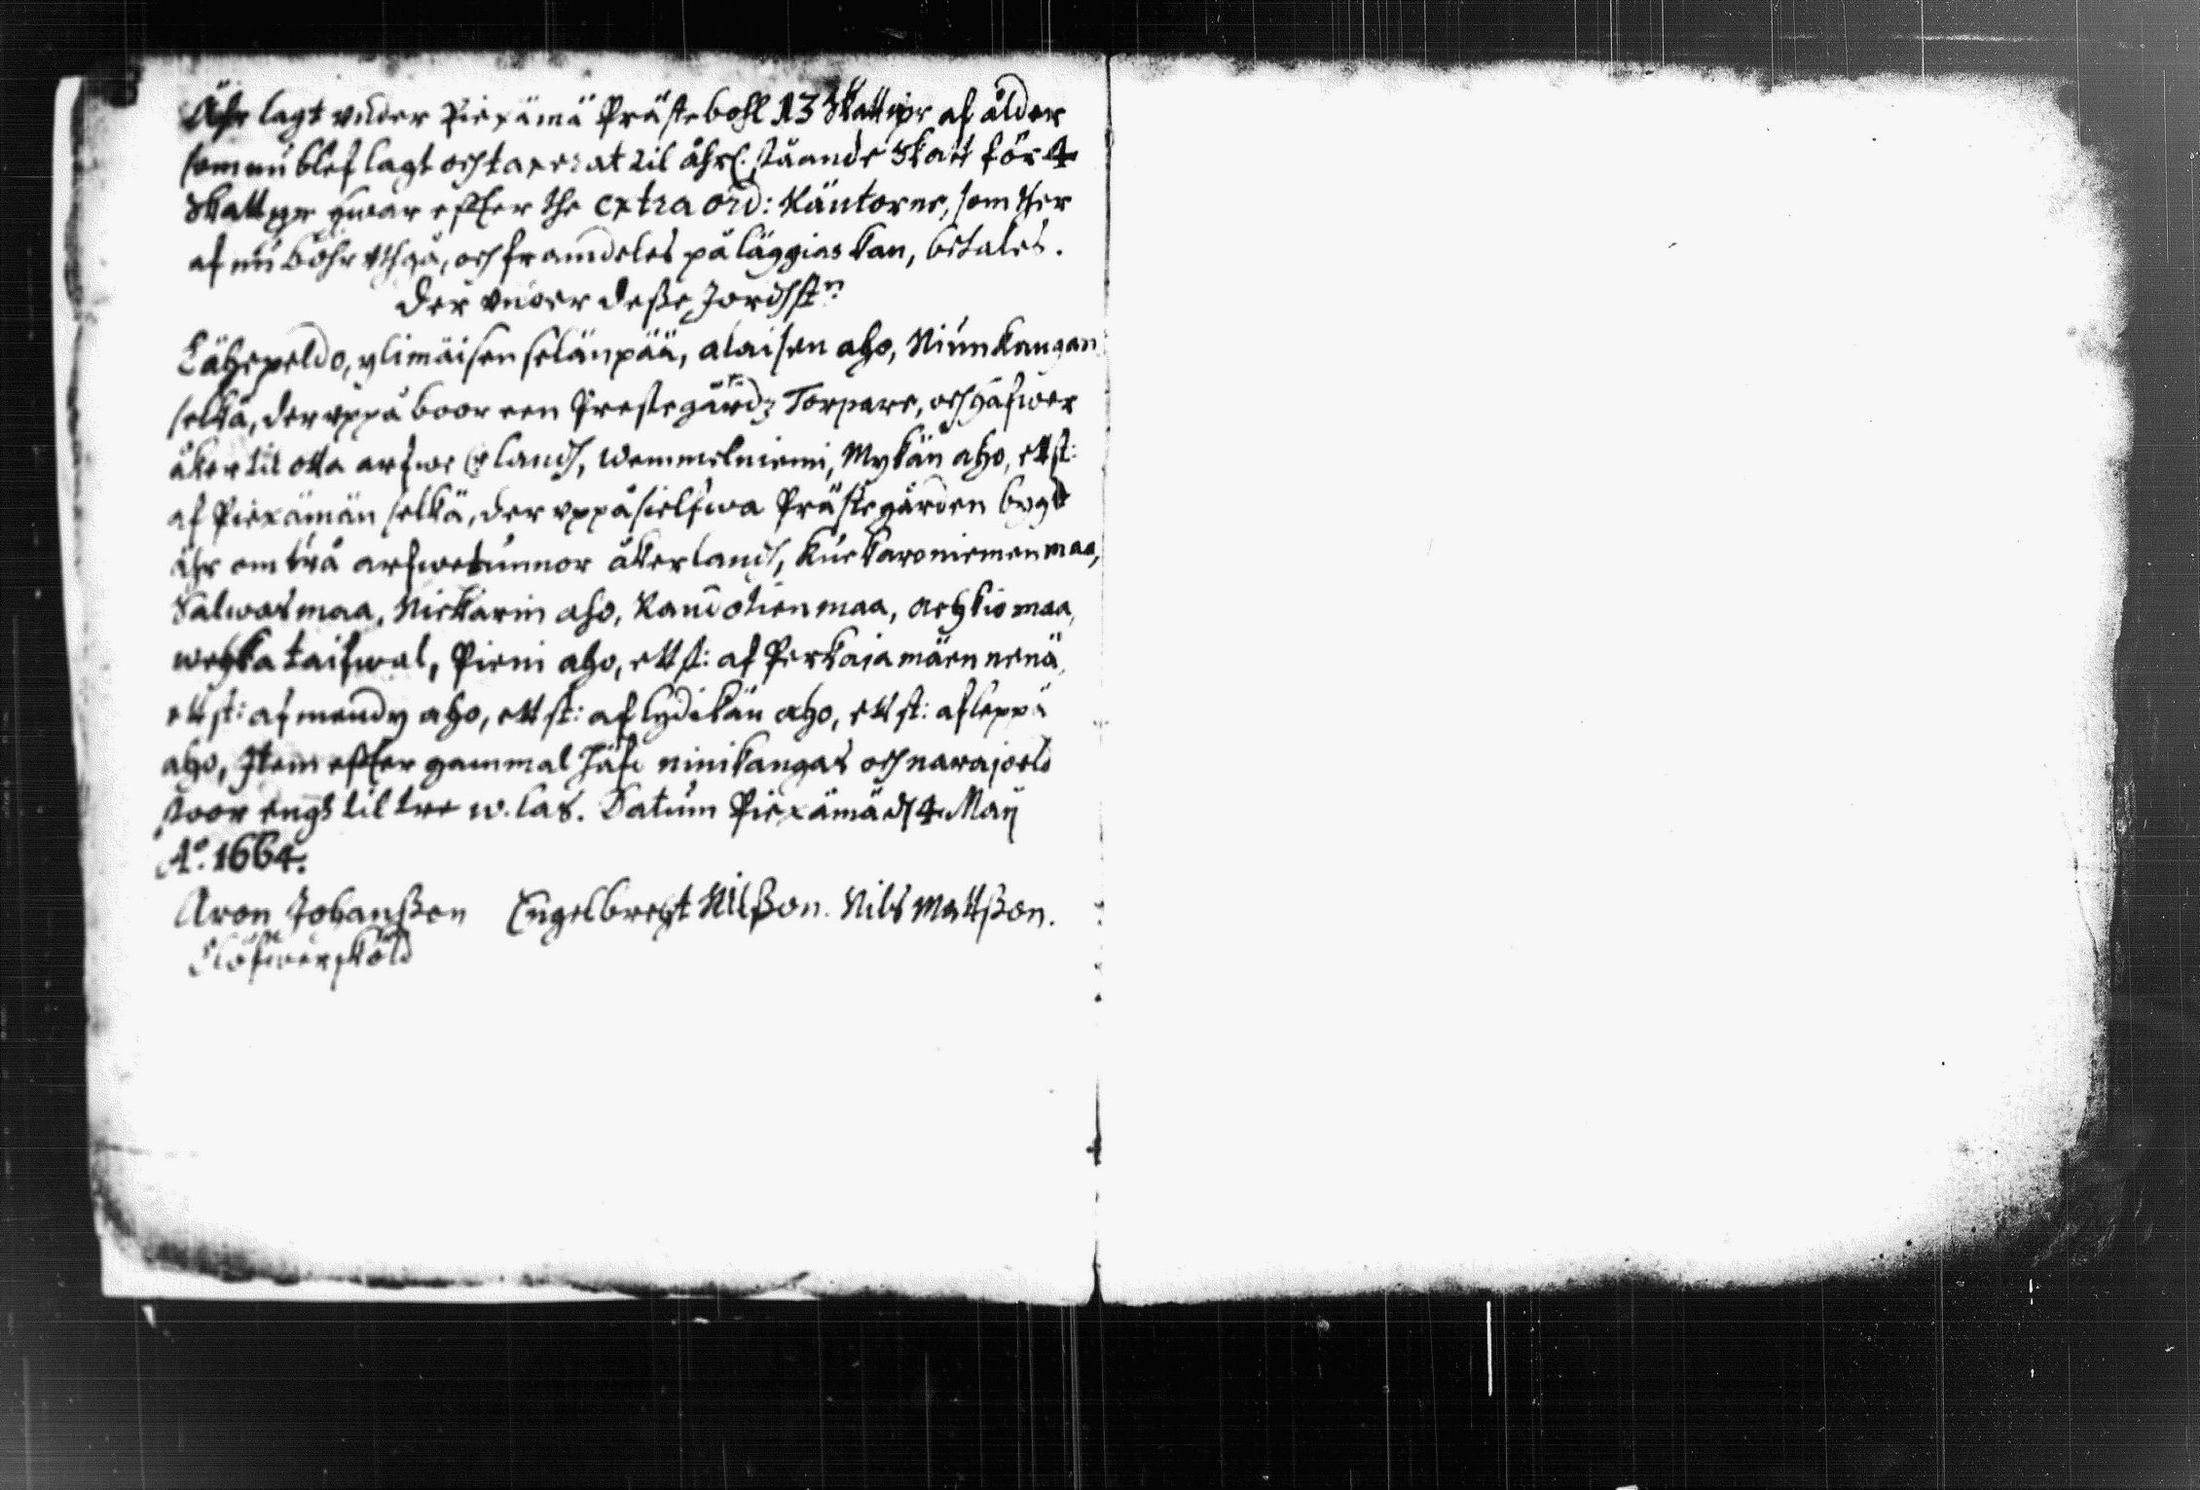 Ähr lagt vnder Piexämä Prästebohl 13 Skattmr af ålder
som nu blef lagt och taxerat til åhrl. stäande Skatt för 4
Skattmr hwar effter the extra ord: Räntorne, som ther
af nu böhr vthgå, och framdeles påläggias kan, betales.
Der vnder desse Jordhstn
Lähepeldo, ylimäisen selänpää, alaisen aho, Niinikangan
selkä, der vppå boor een Prestegårdz Torpare, och häfwer
åker til otta arfwe land, Wemmelniemi, Mykän aho, ett st:
af Piexämän selkä, der vppå sielfwa Prästegården bygd
ähr om två arfwetunnor åkerland, Kuckaroniemen maa,
Salwos maa, Nickarin aho, maa, maa,
wehka taifwal, Pieni aho, ett st: af Perkaiamäen nenä,
ett st: af mendy aho, ett st: af lydikän aho, ett st: af leppä
aho, Item effter gammal häfd ninikangas och
stoor engs til tre w. las. Datum Piexämä d 4 Maij
Ao. 1664.
Aron Johansson Engelbrecht Nilsson. Nils Mattsson.